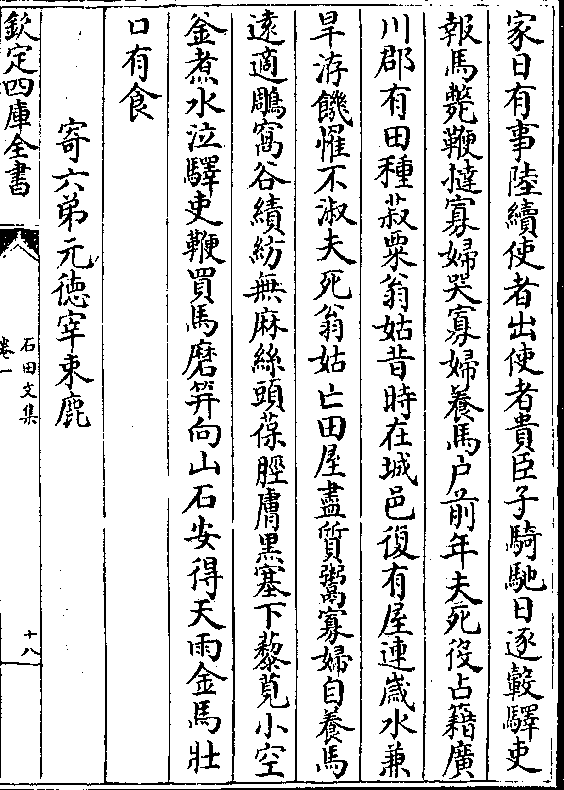 家日有事陸續使者出使者貴臣子騎馳日逐轂驛吏
報馬斃鞭撻寡婦哭寡婦養馬户前年夫死役占籍廣
川郡有田種菽粟翁姑昔時在城邑復有屋連歲水兼
旱洊饑惟不淑夫死翁姑亡田屋盡質鬻寡婦自養馬
遠適鵰窩谷績紡無麻絲頭葆脛膚黒塞下藜莧小空
釡煮水泣驛吏鞭買馬磨笄向山石安得天雨金馬壯
口有食
寄六弟元徳宰束鹿
欽定四庫全書
石田文集
卷一
十八